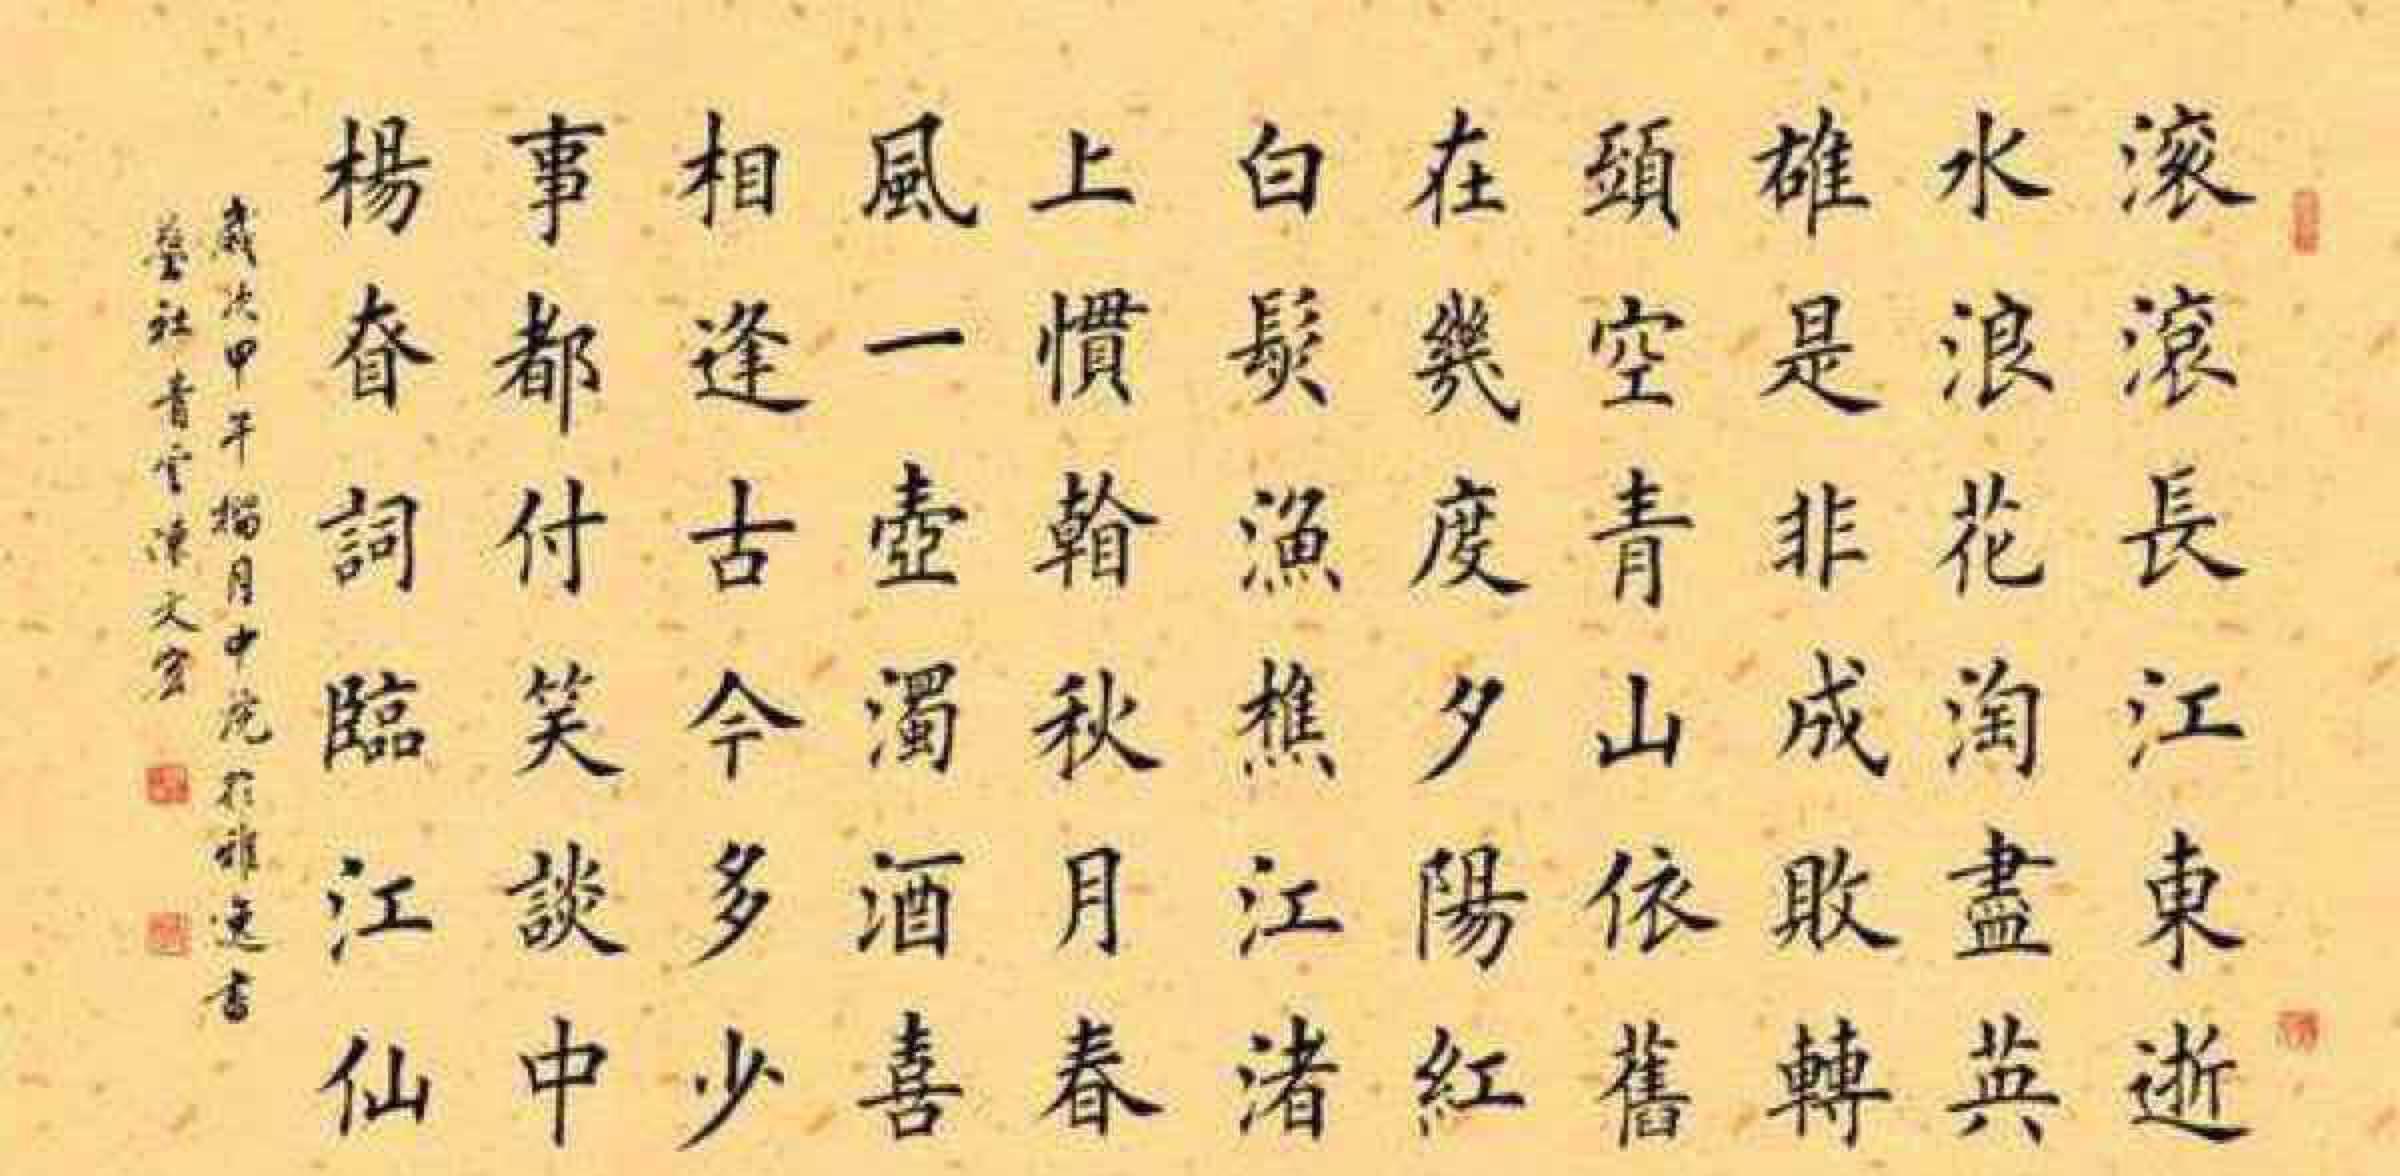 滚滾長江東逝
水浪花淘盡英
雄是非成敗轉
頭空青山依舊
在幾度夕陽紅
白髮漁樵江渚
上慣翰秋月春
風一壺濁酒喜
相逢古今多少
事都付笑談中
楊昚詞臨江仙
歲次甲午榴月中浣於雅逸書
藝社青雲陳文